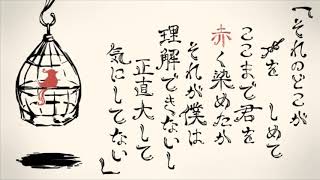 「それのどこが
を しめて
ここまで君を
赤く染めたか
それが僕は
理解できないし
正直大して
気にしてない」